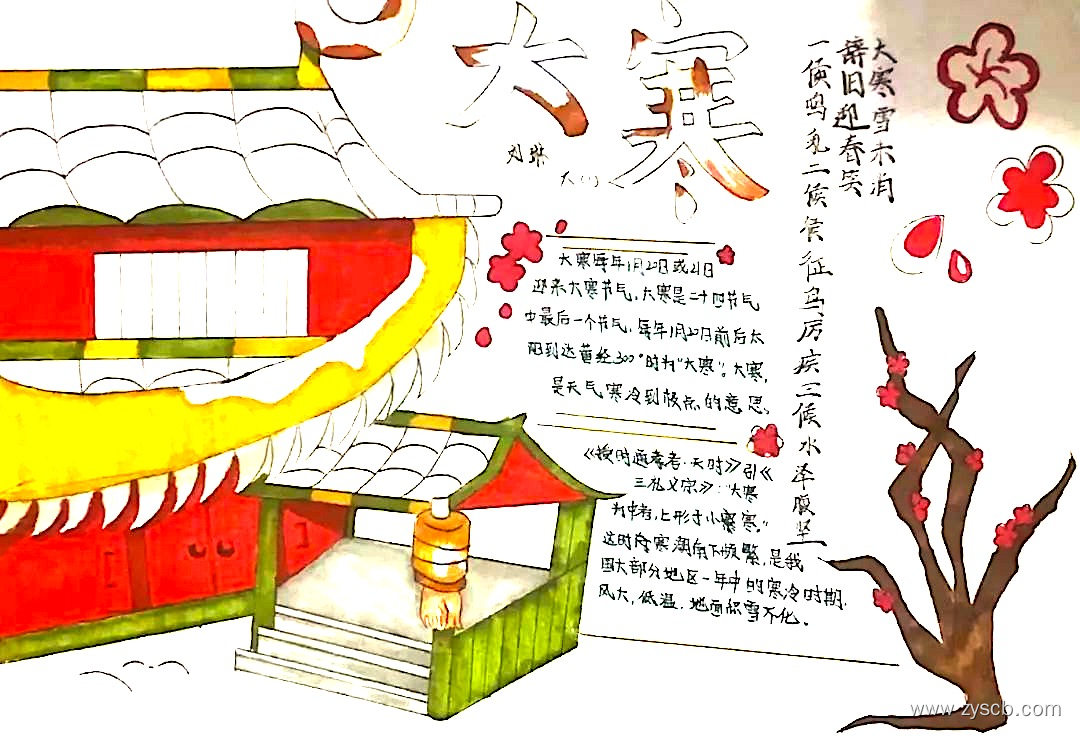 大寒
刘琳
大寒雪未消
辞旧迎春笑
一候鸣乳二候
征鸟厉疾三候水泽腹坚
大寒每年1月20日或21日
迎来大寒节气,大寒是二十四节气
中最后一个节气,每年1月20日前后太
阳到达黄经300°时为“大寒”。大寒,
是天气寒冷到极点的意思。
《授时通考·天时》引《
三礼义宗》:“大寒
为中者,上形于小寒
这时寒潮南下频繁,是我
国大部分地区一年中的寒冷时期.
风大,低温,地面积雪不化。
www.zyscb.com